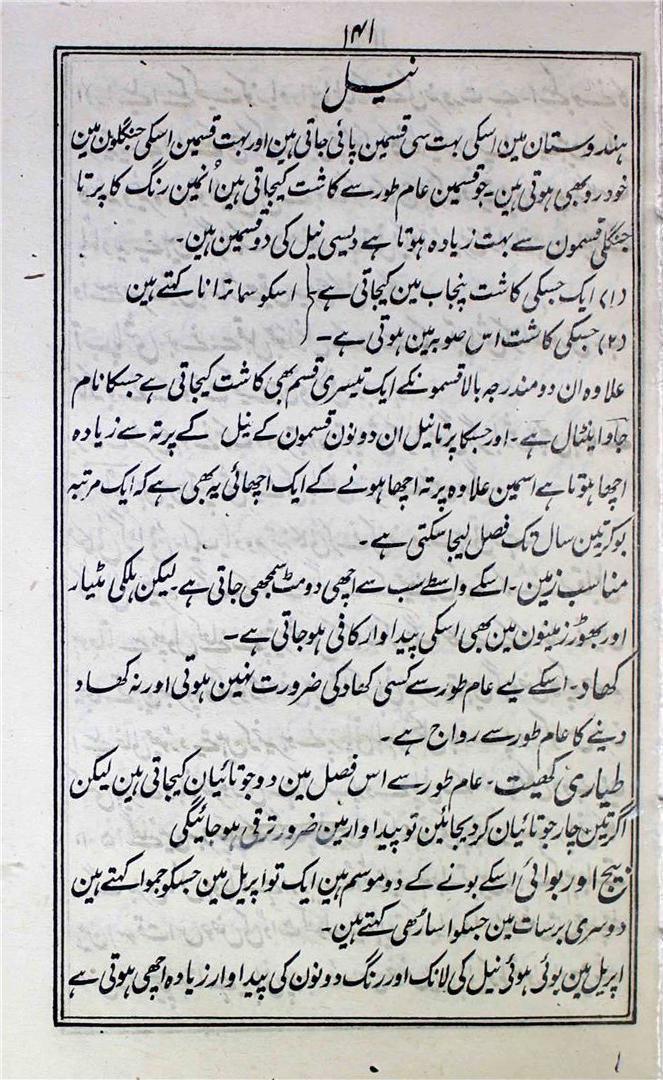 ۱۴۱
نیل
ہندوستان مین اسکی بہت سی قسمین پائی جاتی ہین اور بہت قسمین اسکی جنگلون مین
خودرو بھی ہوتی ہین ۔ جو قسمین عام طور سے کاشت کیجاتی ہین اُنمین رنگ کا پرتا
جنگلی قسمون سے بہت زیادہ ہوتا ہے دیسی نیل کی دو قسمین ہین۔
(۱) ایک جسکی کاشت پنجاب مین کیجاتی ہے۔ اسکو سماترانا کہتے ہین
(۲) جسکی کاشت اس صوبہ مین ہوتی ہے۔
علاوہ ان دو مندرجہ بالا قسمونکے ایک تیسری قسم بھی کاشت کیجاتی ہے جسکا نام
جاوا ینٹال ہے۔ اور جسکا پرتا نیل ان دونون قسمون کے نیل کے پرتہ سے زیادہ
اچھا ہوتا ہے اسمین علاوہ پرتہ اچھا ہونے کے ایک اچھائی یہ بھی ہے کہ ایک مرتبہ
بوکر تین سال تک فصل لیجا سکتی ہے۔
مناسب زمین۔ اسکے واسطے سب سے اچھی دومٹ سمجھی جاتی ہے۔ لیکن ہلکی مٹیار
اور بھوڑ زمینون مین بھی اسکی پیداوار کافی ہوجاتی ہے۔
کھاد۔ اسکے لیے عام طور سے کسی کھاد کی ضرورت نہین ہوتی اور نہ کھاد
دینے کا عام طور سے رواج ہے۔
طیاری کھیت۔ عام طور سے اس فصل مین دو جوتائیان کیجاتی ہین لیکن
اگر تین چار جوتائیان کردیجائین تو پیداوار مین ضرور ترقی ہوجائیگی
بیج اور بوائی اسکے بونے کے دو موسم ہین ایک تو اپریل مین جسکو جموا کہتے ہین
دوسری برسات مین جسکو اساڑھی کہتے ہین۔
اپریل مین بوئی ہوئی نیل کی لانک اور رنگ دونون کی پیداوار زیادہ اچھی ہوتی ہے